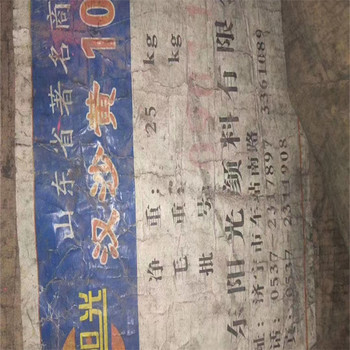 山东省著名商
汉沙黄10
旦光
净重: 25 kg
毛重: kg
批号:
东阳光颜料有限
址: 济宁市车站南路
话: 0537 23 7897 3361089
真: 0537 23 1908